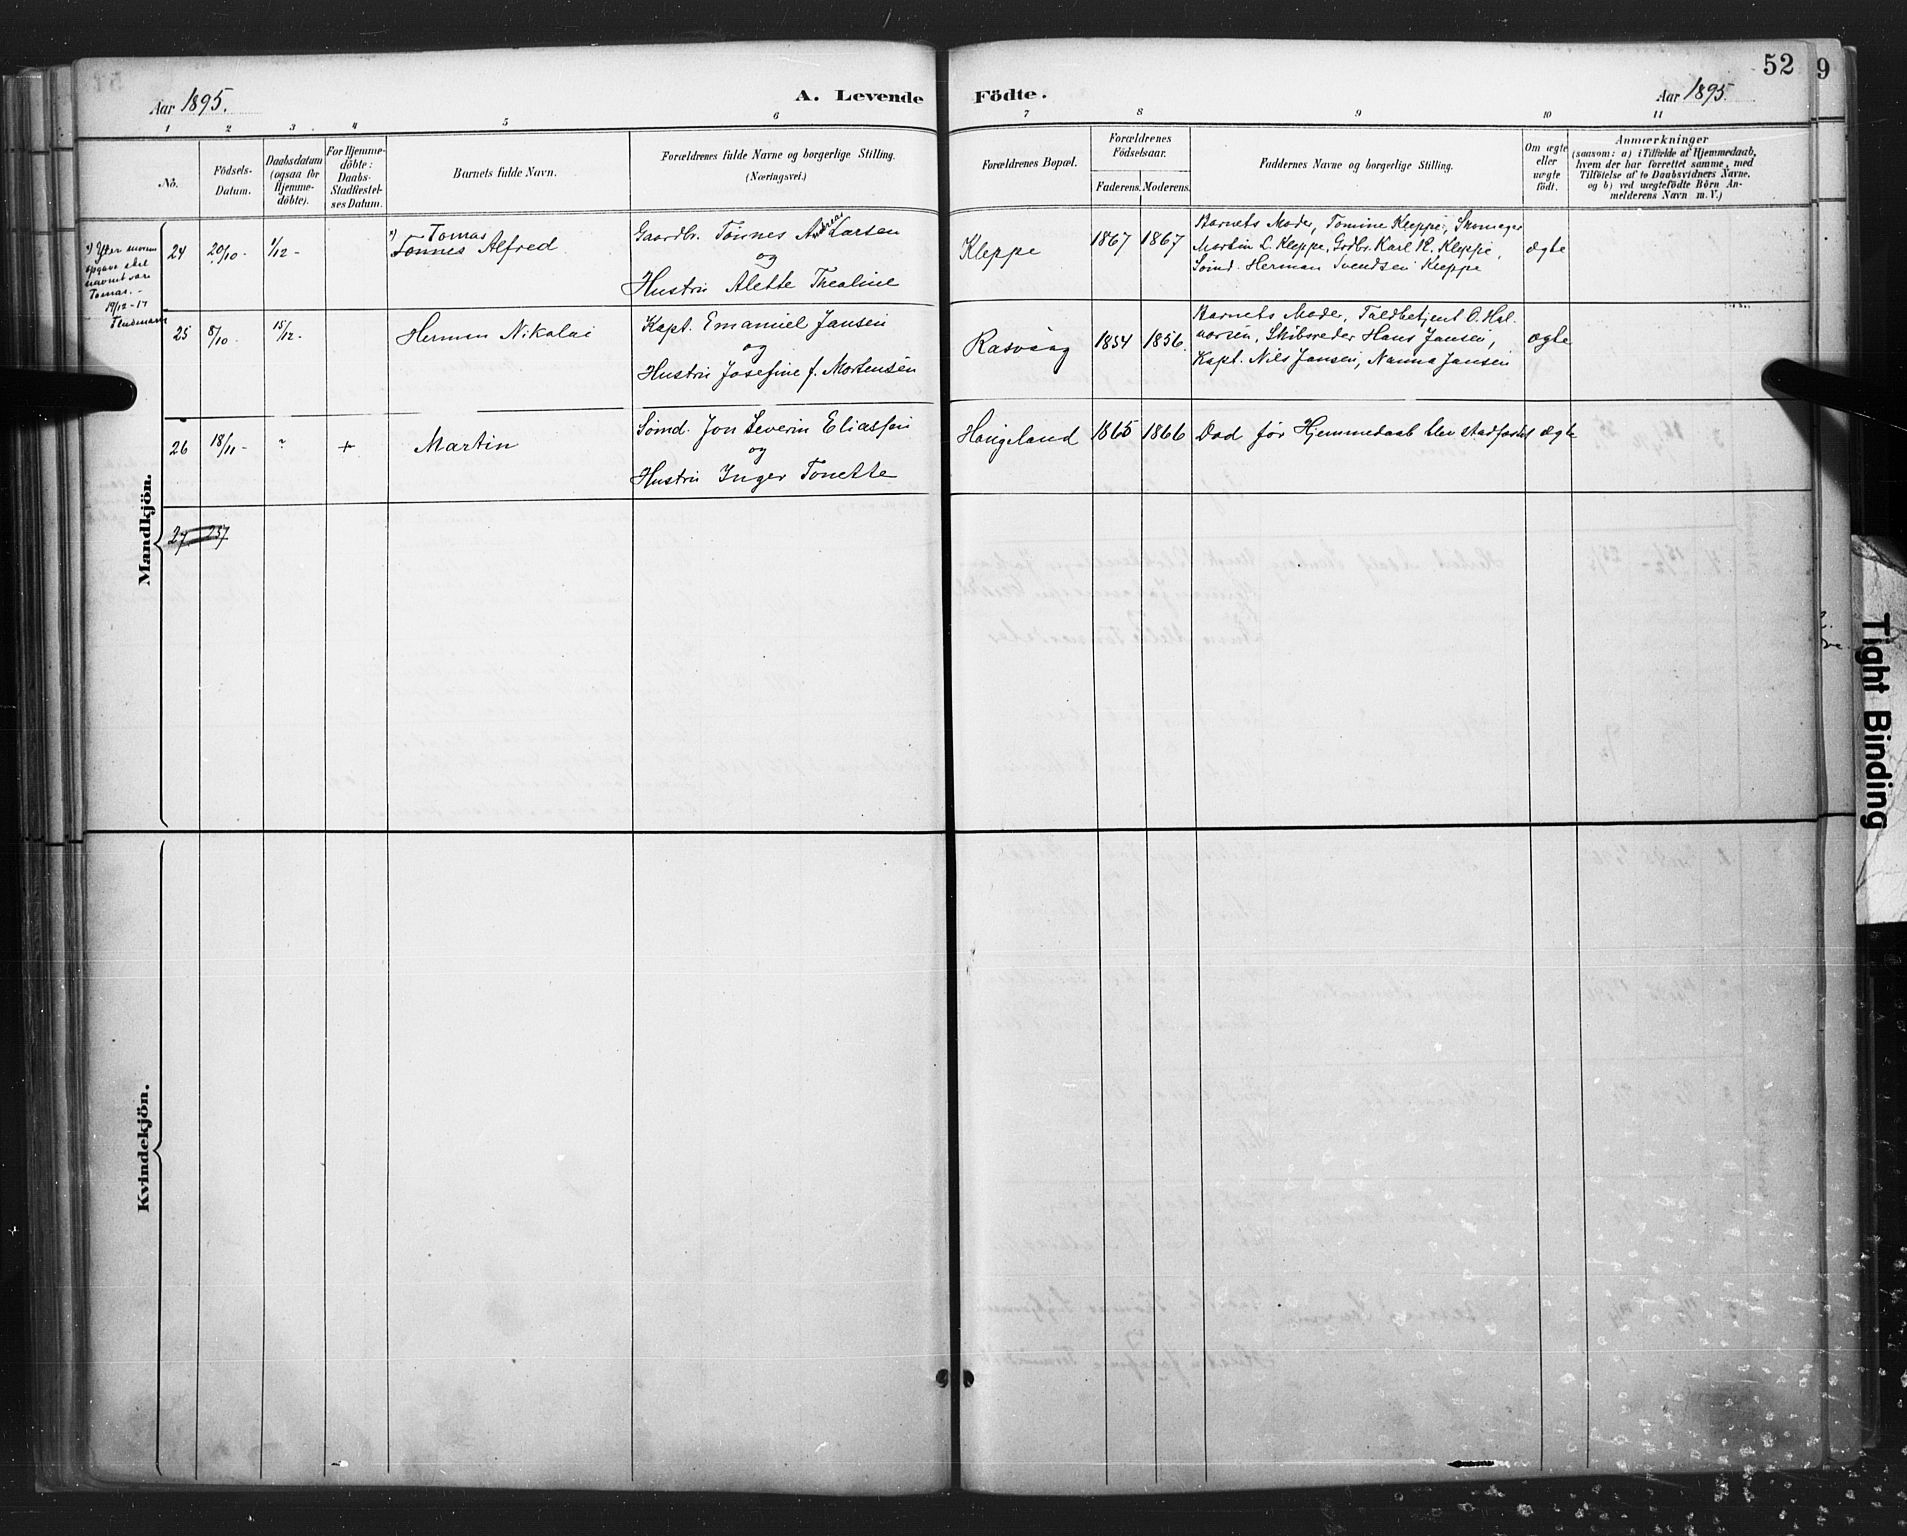 52
9
Aar 1895.
A. Levende
Födte.
Aar 1895.
1 2 3 4 5 6 7 8 9 10 11
No.
Födsels-
Datum.
Daabsdatum
(ogsaa for
Hjemme-
döbte).
For Hjemme-
döbte:
Daabs-
Stadfæstel-
ses Datum.
Barnets fulde Navn.
Forældrenes fulde Navne og borgerlige Stilling.
(Næringsvei.)
Forældrenes Bopæl.
Forældrenes
Födselsaar.
Faderens. Moderens.
Faddernes Navne og borgerlige Stilling.
Om ægte
eller
uægte
födt.
Anmærkninger
(saasom: a) i Tilfælde af Hjemmedaab,
hvem der har forrettet samme, med
Tilföielse af to Daabsvidners Navne,
og b) ved uægtefödte Börn An-
melderens Navn m. V.)
Mandkjön.
navnet være
Tomas. -
19/12-17
24 20/10- 1/12-
Tomas
Tønnes Alfred
Gaardbr. Tønnes Andreas Larsen
og
Hustru Alette Thealine
Kleppe 1867 1867
Barnets Moder, Tomine Kleppe, Skomager
Martin L. Kleppe, Grdbr. Karl K. Kleppe,
Sømd. Herman Svendsen Kleppe
ægte
25 8/10- 15/12-
Herman Nikolai
Kapt. Emanuel Jansen
og
Hustru Josefine f. Mortensen
Rasvaag 1854 1856.
Barnets Moder, Toldbetjent O. Hal-
vorsen, Skibsreder Hans Jansen,
Kapt. Nils Jansen, Nanna Jansen
ægte
26 18/11- " +
Martin
Sømd. Jon Severin Eliassen
og
Hustru Inger Tonette
Haugeland 1865 1866
Død før Hjemmedaab blev stadfæstet
ægte
27
Kvindekjön.
Tight Binding